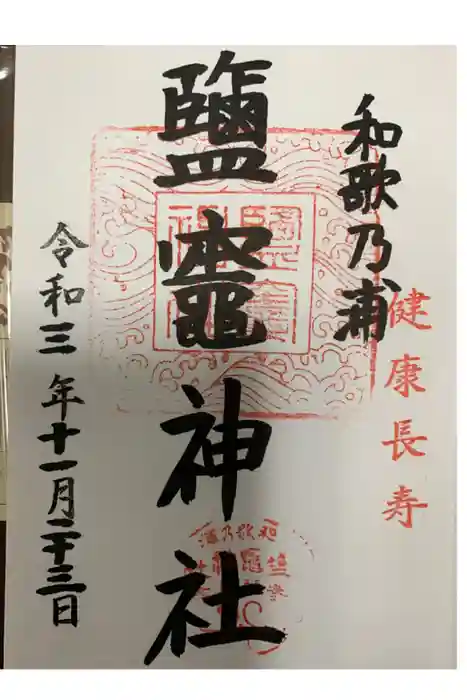 健康長寿
和歌乃浦
鹽竈神社
令和三年十一月二十三日